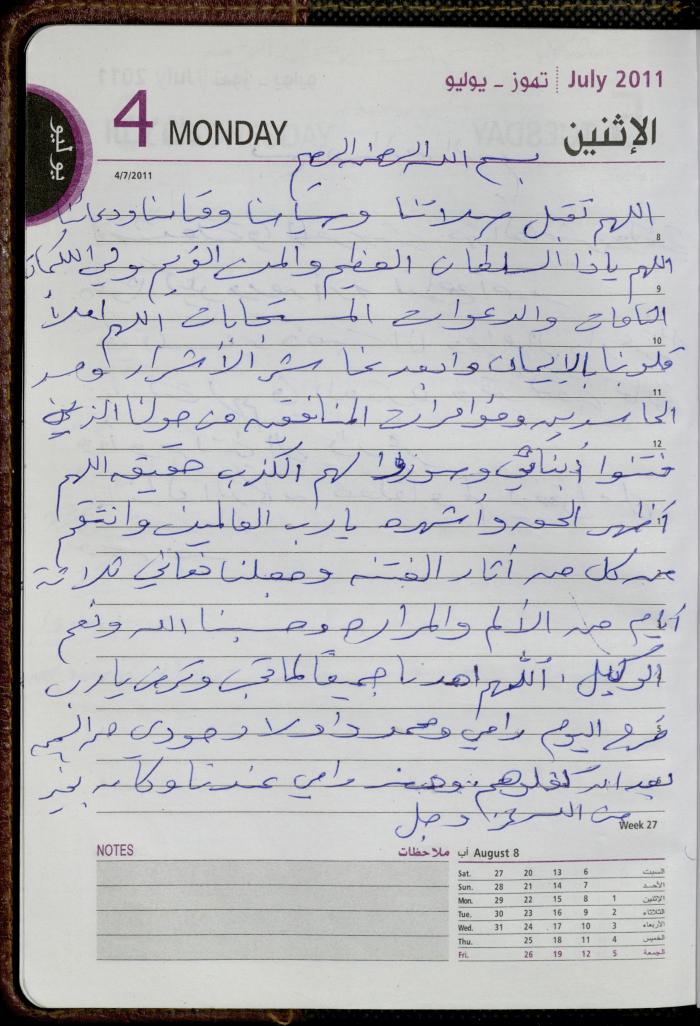 July 2011 تموز - يوليو
4 MONDAY الإثنين
يوليو
4/7/2011
بسم الله الرحمن الرحيم
اللهم تقبل صلاتنا وصيامنا وقيامنا ودعائنا
8
اللهم ياذا السلطان العظيم والمن القديم وفي الكلمات
9
التامات والدعوات المستجابات اللهم املأ
10
قلوبنا بالإيمان وابعد عنا شر الأشرار وحسد
11
الحاسدين ومؤامرات المنافقين من حولنا الذين
12
فتنوا أبنائي وصوروا لهم الكذب حقيقه اللهم
أظهر الحق وأشهره يارب العالمين وانتقم
من كل من أثار الفتنه وجعلنا نعاني ثلاثة
أيام من الألم والمراره وحسبنا الله ونعم
الوكيل، اللهم اهدنا جميعًا لما تحب وترضى يارب
خرج اليوم رامي ومحمد داولا دحودي من
بعد ان كفلوهم، وحضر رامي عندنا وكان بخير
من الله عز وجل
Week 27
NOTES ملاحظات
August 8 آب
Sat. 27 20 13 6 السبت
Sun. 28 21 14 7 الأحد
Mon. 29 22 15 8 1 الإثنين
Tue. 30 23 16 9 2 الثلاثاء
Wed. 31 24 17 10 3 الأربعاء
Thu. 25 18 11 4 الخميس
Fri. 26 19 12 5 الجمعة